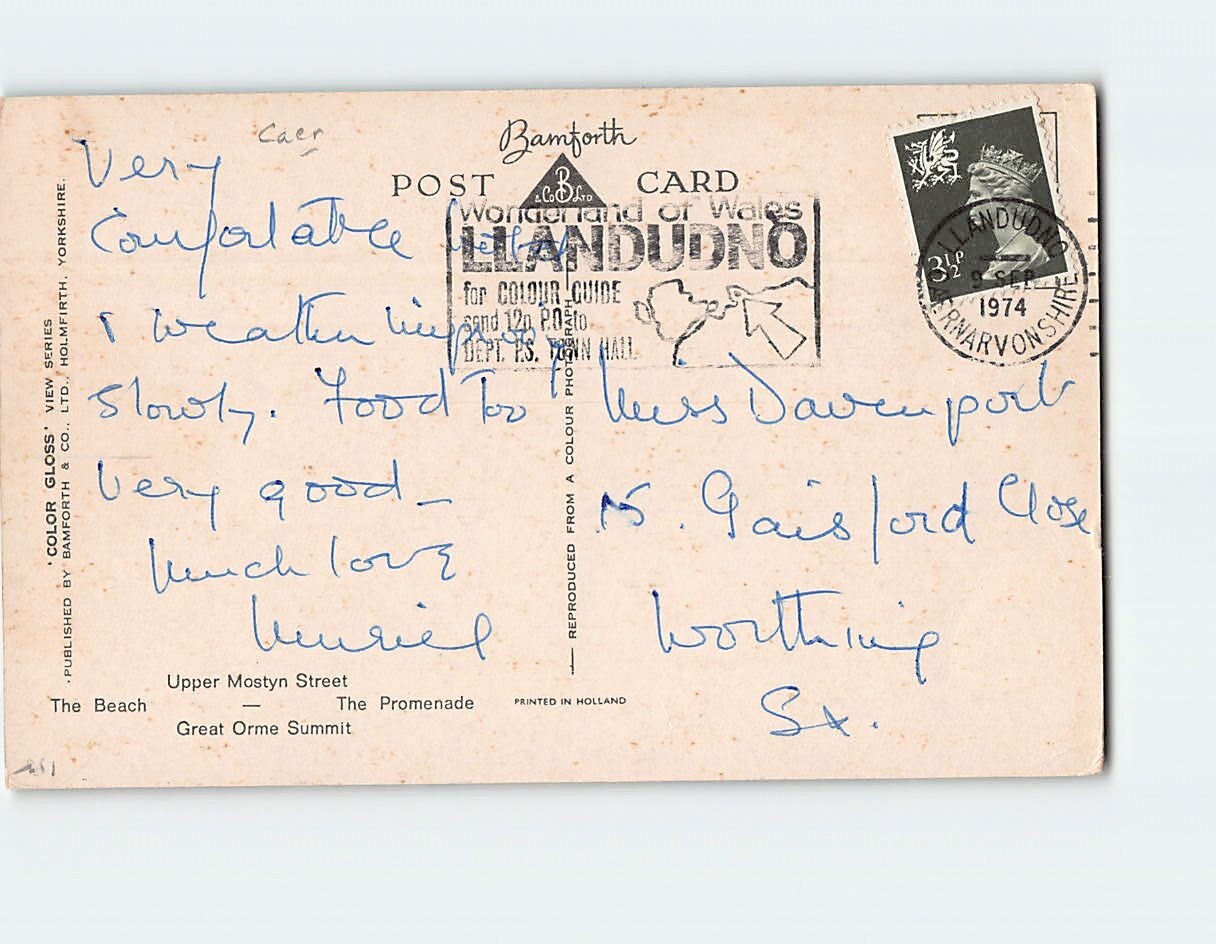 Caer
Bamforth
& Co B LTD
POST CARD
Wonderland of Wales
LLANDUDNO
for COLOUR GUIDE
send 12p P.O. to
DEPT. P.S. TOWN HALL
3½P
LLANDUDNO
9 SEP
1974
CAERNARVONSHIRE
Very
Comfortable hotel
& weather improving
slowly. Food too
very good —
Much love
Muriel
Miss Davenport
15. Gaisford Close
Worthing
Sx.
'COLOR GLOSS' VIEW SERIES
PUBLISHED BY BAMFORTH & CO., LTD., HOLMFIRTH, YORKSHIRE.
REPRODUCED FROM A COLOUR PHOTOGRAPH
Upper Mostyn Street
The Beach — The Promenade
Great Orme Summit
PRINTED IN HOLLAND